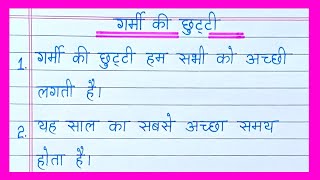 गर्मी की छुट्टी
1. गर्मी की छुट्टी हम सभी को अच्छी
लगती है।
2. यह साल का सबसे अच्छा समय
होता है।